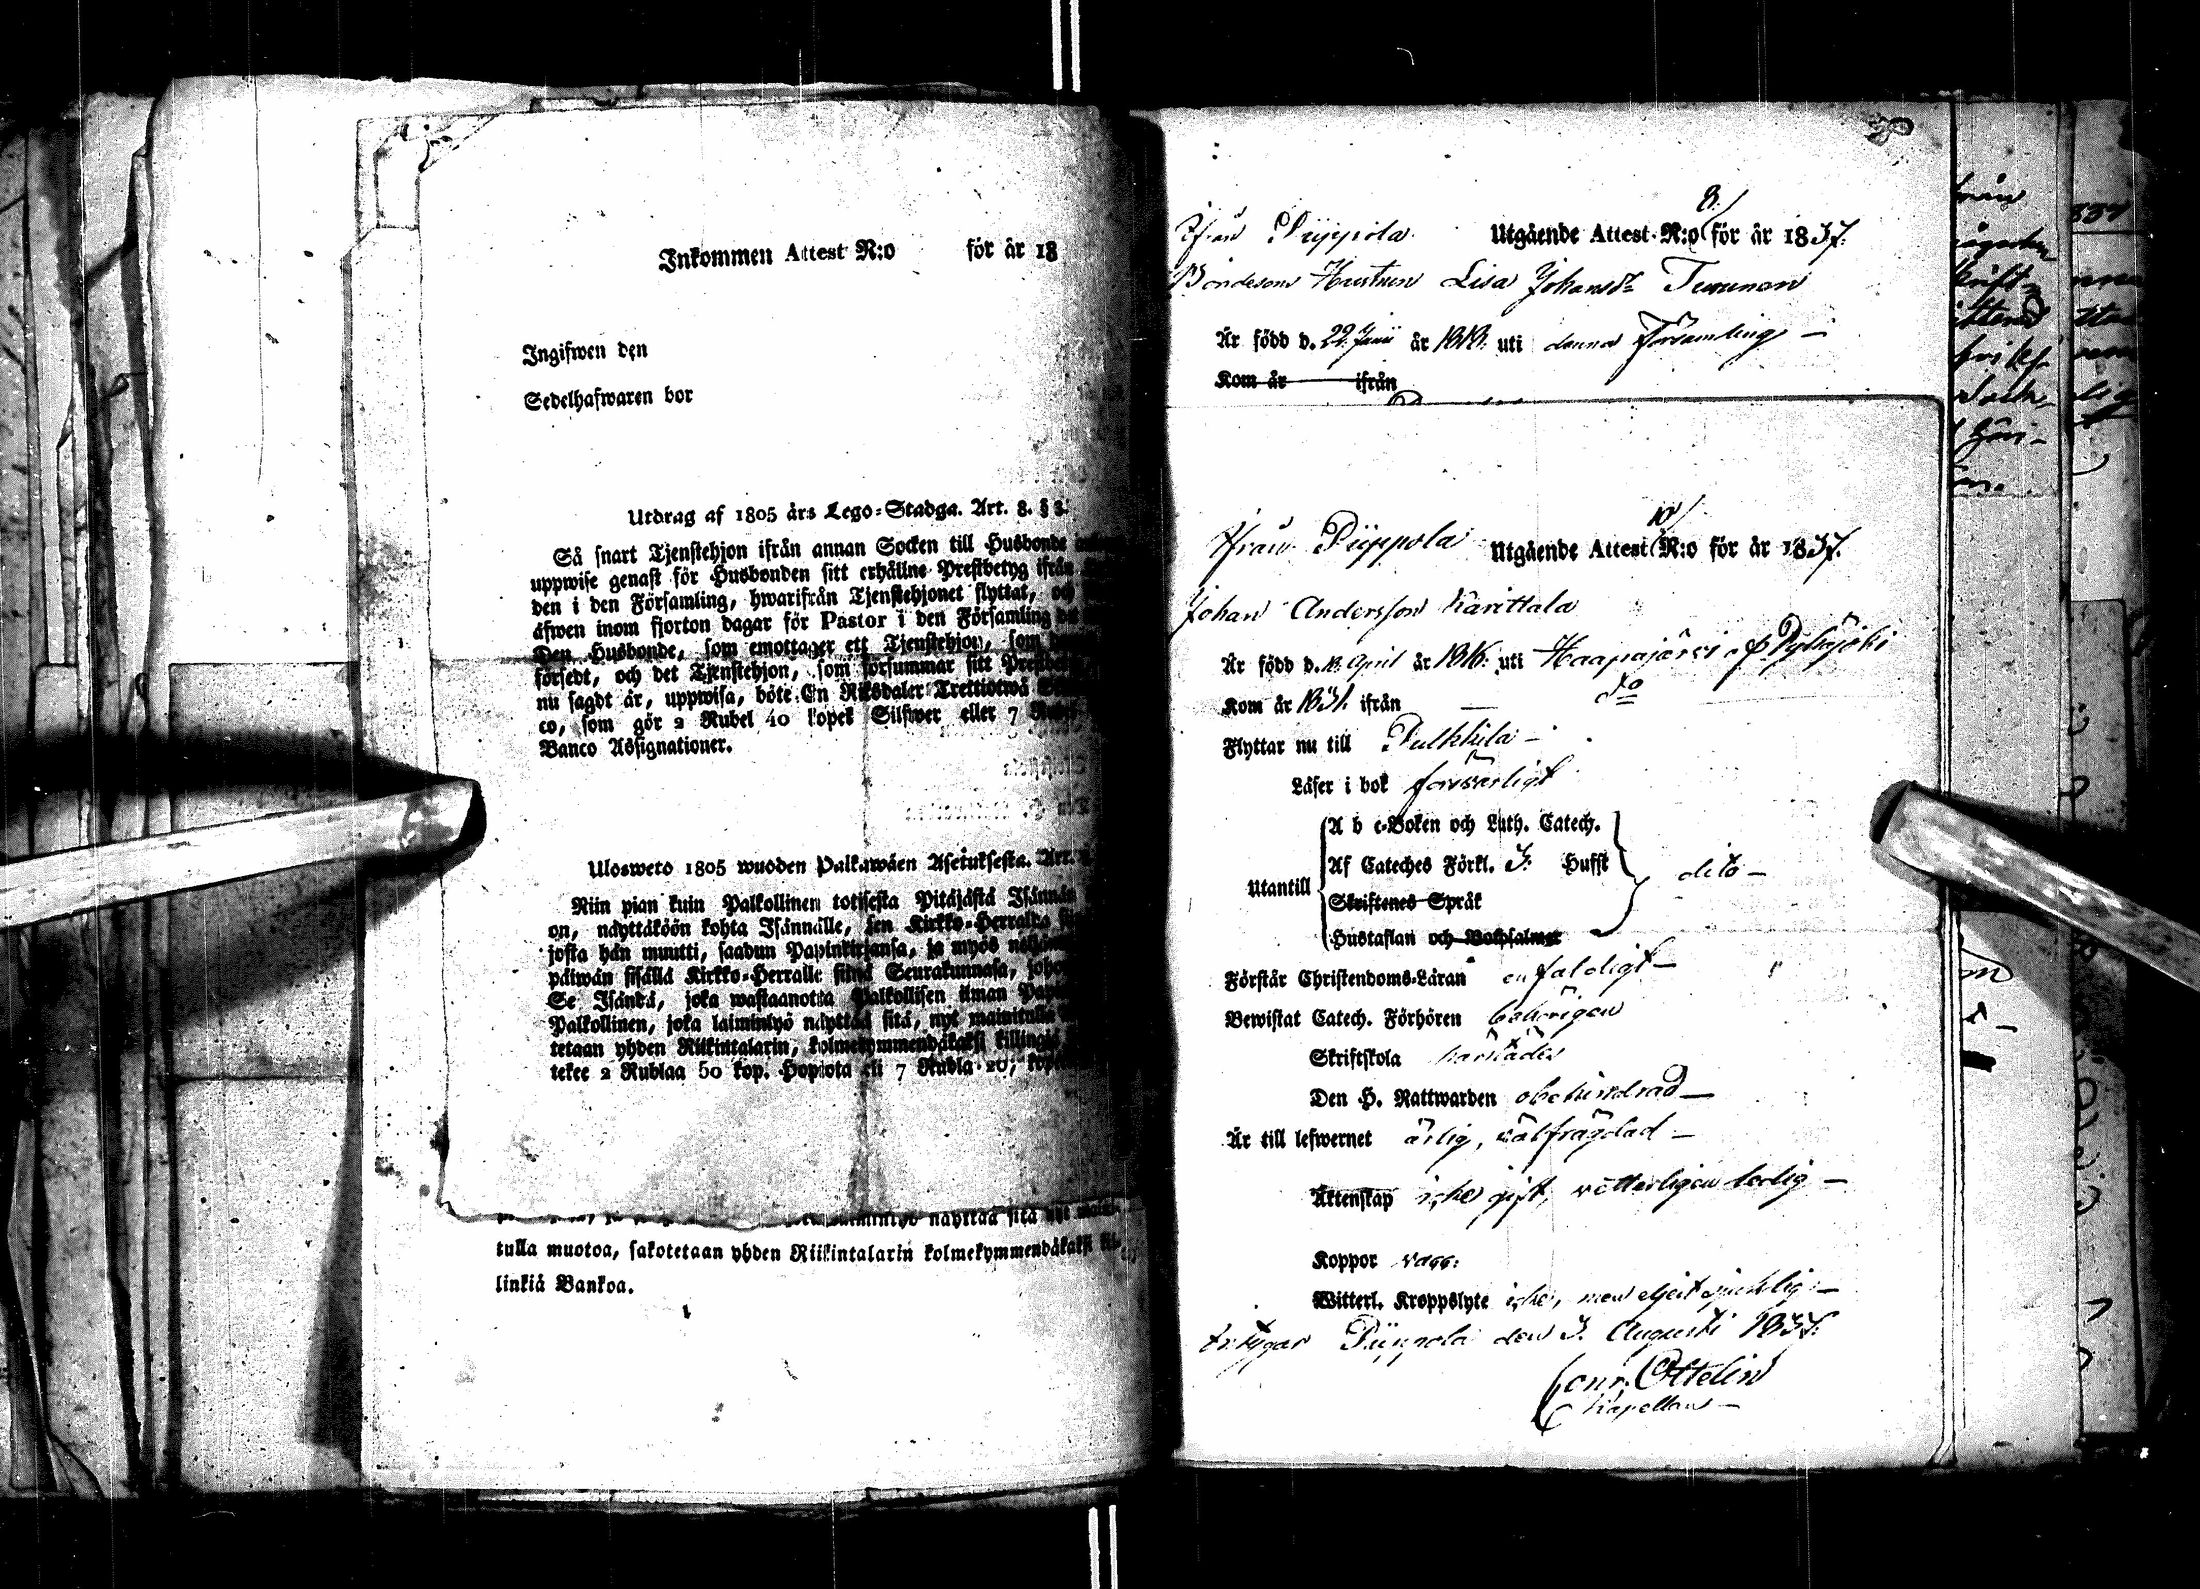 Inkommen Attest N:o för år 18
Ingifwen den
Sedelhafwaren bor
Utdrag af 1805 års Lego-Stadga. Art. 8. § 3.
Så snart Tjenstehjon ifrån annan Socken till Husbonde
uppwise genast för Husbonden sitt erhållne Prestbetyg ifrån
den i den Församling, hwarifrån Tjenstehjonet flyttat, och
äfwen inom fjorton dagar för Pastor i den Församling
Den Husbonde, som emottager ett Tjenstehjon, som
försedt, och det Tjenstehjon, som försummar sitt
nu sagdt är, uppwisa, böte En Riksdaler Trettiotwå
co, som gör 2 Rubel 40 kopek Silfwer eller 7
Banco Assignationer.
Ulosweto 1805 wuoden Palkawäen Asetuksesta. Art.
Niin pian kuin Palkollinen toisesta Pitäjästä Isännän
on, näyttäköön kohta Isännälle, sen Kirkko-Herralta
josta hän muutti, saadun Papinkirjansa, ja myös
päiwän sisällä Kirkko-Herralle siinä Seurakunnasa,
Se Isändä, joka wastaanottaa Palkollisen ilman
Palkollinen, joka laiminlyö näyttää sitä, nyt mainitulla
tetaan yhden Riikintalarin, kolmekymmendäkaksi killingiä
tekee 2 Rublaa 50 kop. Hopiota eli 7 Rubla 20,
näyttää sitä nyt
tulla muotoa, sakotetaan yhden Riikintalarin kolmekymmendäkaksi
linkiä Bankoa.
Ifrån Piippola Utgående Attest N:o 8/ för år 1837.
Bondesons Hustrun Lisa Johansdr
Är född d. 22 Junii år 1818. uti denna Församling –
Kom år ifrån
Ifrån Piippola Utgående Attest N:o 10/ för år 1837.
Johan Andersson Karittala
Är född d. 18 April år 1816. uti Haapajärvi Pyhäjoki
Kom år 1831. ifrån — do
Flyttar nu till Pulkkila –
Läser i bok försvarligt
Utantill
A b c-Boken och Luth. Catech.
Af Cateches Förkl. Huffst
Skriftenes Språk
Hustaflan och Botpsalmer
dito –
Förstår Christendoms-Läran enfaldigt –
Bewistat Catech. Förhören behörigen
Skriftskola
Den H. Nattwarden obehindrad –
Är till lefwernet ärlig, välfrägdad –
Äktenskap icke gift, vetterligen ledig –
Koppor vacc:
Witterl. Kroppslyte icke, men
betygar Piippola den 3. Augusti 1837.
Conr. Ottelin
Kapellan –